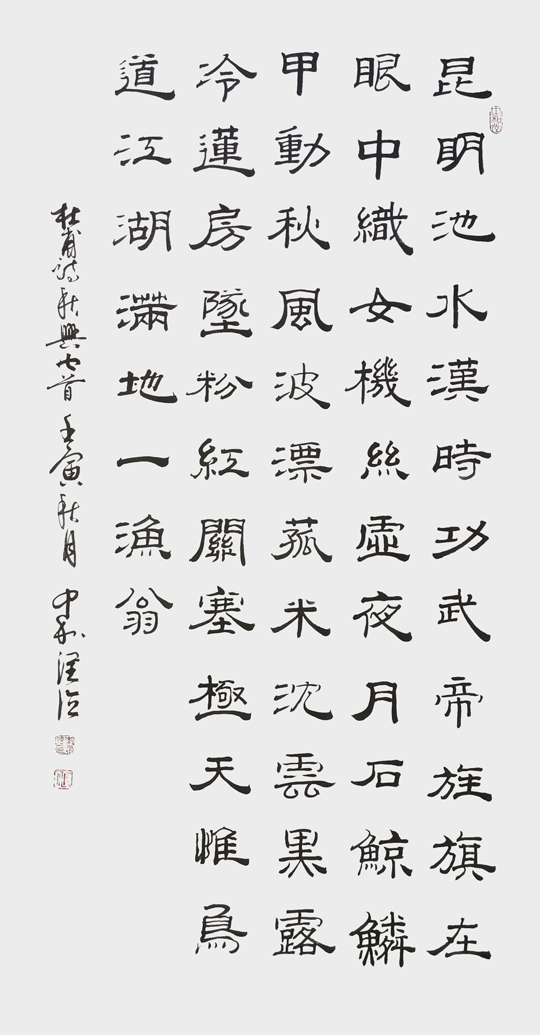 昆明池水漢時功武帝旌旗在
眼中織女機絲虛夜月石鯨鱗
甲動秋風波漂菰米沈雲黑露
冷蓮房墜粉紅關塞極天惟鳥
道江湖滿地一漁翁
杜甫詩秋興七首 壬寅秋月